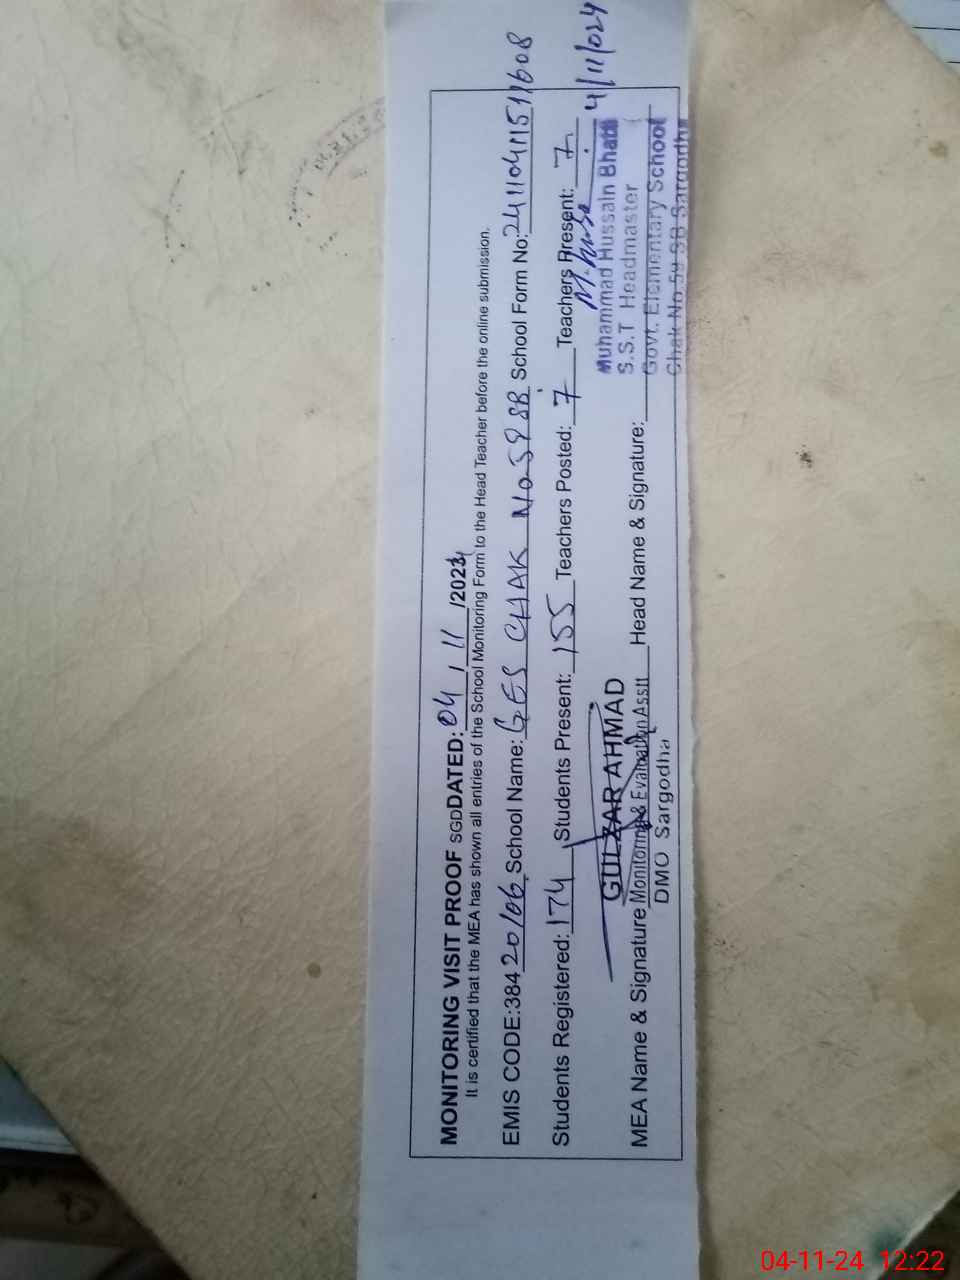 MONITORING VISIT PROOF SGDDATED: 04 / 11 /2024
It is certified that the MEA has shown all entries of the School Monitoring Form to the Head Teacher before the online submission.
EMIS CODE:38420106 School Name: GES CHAK No 59 SB School Form No:
Students Registered: 174 Students Present: 155 Teachers Posted: 7 Teachers Present: 7
4/11/024
GULZAR AHMAD
MEA Name & Signature Monitoring & Evaluation Asstt Head Name & Signature:
DMO Sargodha
Muhammad Hussain Bhatti
S.S.T Headmaster
Govt. Elementary School
Chak No.59 SB Sargodha
04-11-24 12:22